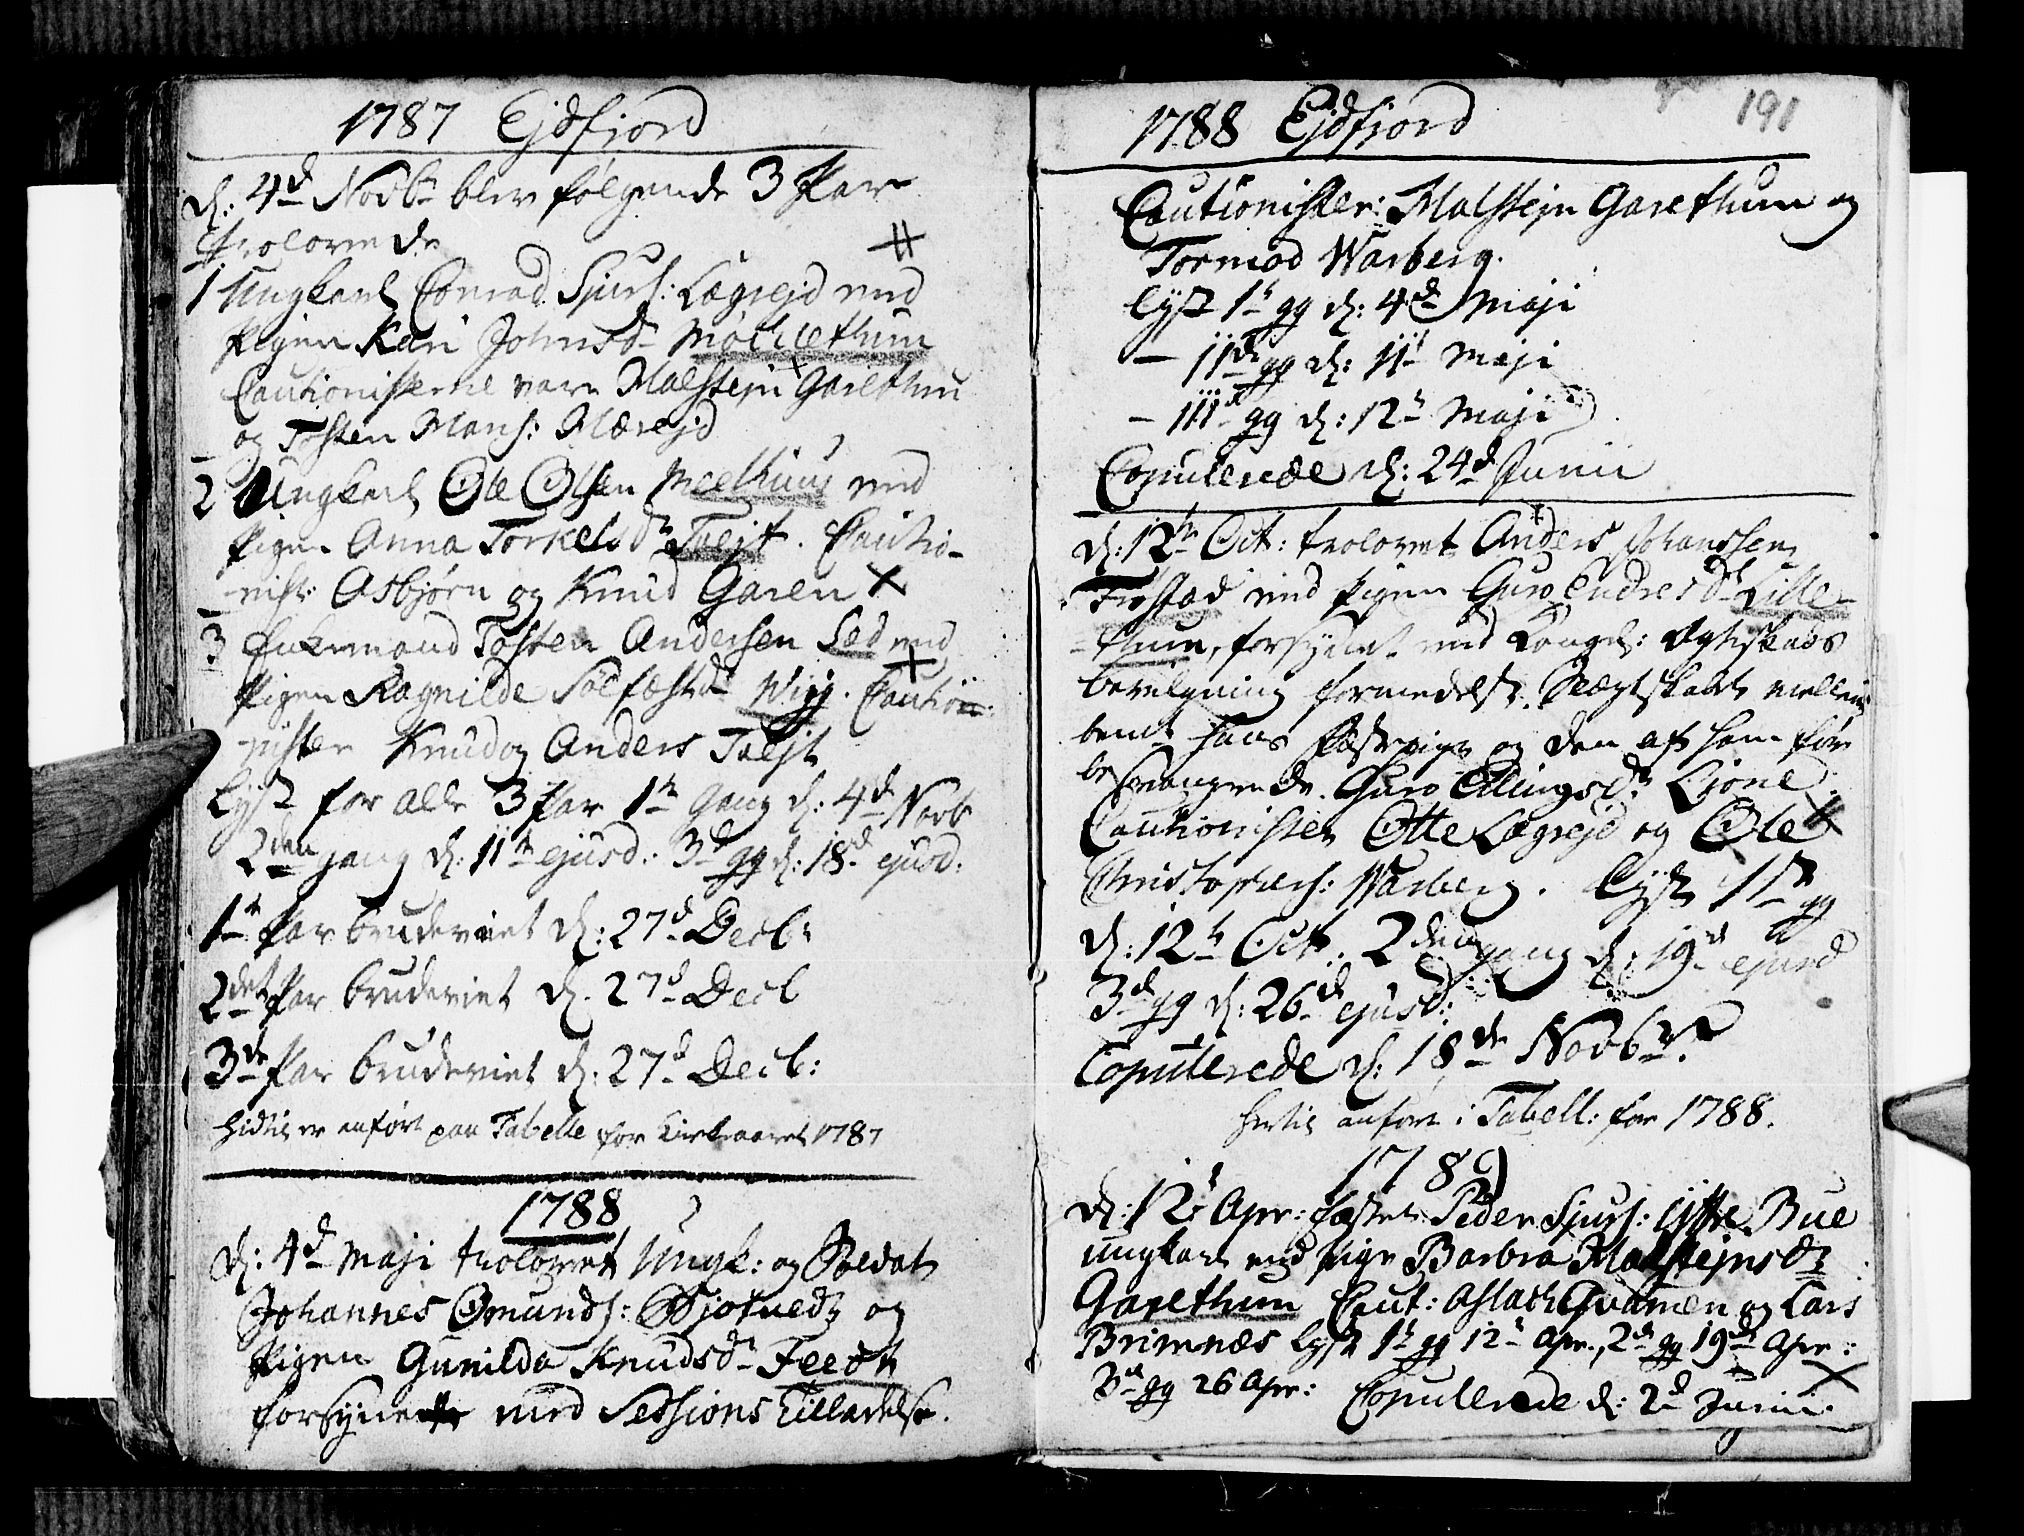 1787 Ejdfjord
d: 4d Novbr blev følgende 3 Par
trolovede
1 Ungkarl Conrad Sjurs: Lægrejd med
Pigen Kari Johnsd Møchlethum
Cautionisterne vare Malstejn Garethun
og Tosten Mans: Mærejd
2 Ungkarl Ole Olsen Meelhuus med
Pigen Anna Torkelsdr Tvejt. Cautio-
nist: Asbjørn og Knud Garen
3 Enkemand Tosten Andersen Sed med
Pigen Ragnilde Sølfæstd Wiig. Caution-
nister Knud og Anders Tvejt
Lyst for alle 3 Par 1te Gang d: 4de Novb
2den gang d: 11te ejusd: 3d gg d: 18d ejusd:
1te Par brudeviet d: 27d Decbr
2det Par brudeviet d. 27d Decb
3de Par brudeviet d: 27d Decb:
Hidtil er anført paa Tabelle for Kirkeaaret 1787
1788
d: 4d Maji trolovet Ungk: og Soldat
Johannes Omunds: og
Pigen Gunilda Knudsdr Feedt
forsynet med Sessions Tilladelse.
191
1788 Ejdfjord
Cautionister: Malstejn Garethun og
Tormod Warberg.
Lyst 1te gg d: 4de Maji
— 11de gg d: 11te Maji
— 111d gg d: 12te Maji
Copulerede d: 24d Junii
d: 12te Oct: trolovet Anders Johanssen
Trostad med Pigen Guro Endresdr Lille-
-thun, forsynet med Kongel: Ægteskabs
bevilgning formedelst Slægtskabet mellem
bemte hans Fæstepige og den af ham før
besvangrede Guro Ellingsdr Ljone
Cautionister Otte Lægrejd og Ole
Christophers: Warberg. Lyst 1te gg
d: 12te Oct. 2den gang d: 19d ejusd
3d gg d: 26de ejusd:
Copulerede d: 18de Novbr.
Hertil anført i Tabell: for 1788.
1789
d: 12te Apr: fæstet Peder Sjurs: Bue
ungkarl med pige Barbra Malstejnsdr
Garethun Caut: Aslach Qvamen og Lars
Brimnæs Lyst 1te gg 12te Apr., 2de gg 19de Apr:
3d gg 26 Apr: Copulerede d: 2d Junii.